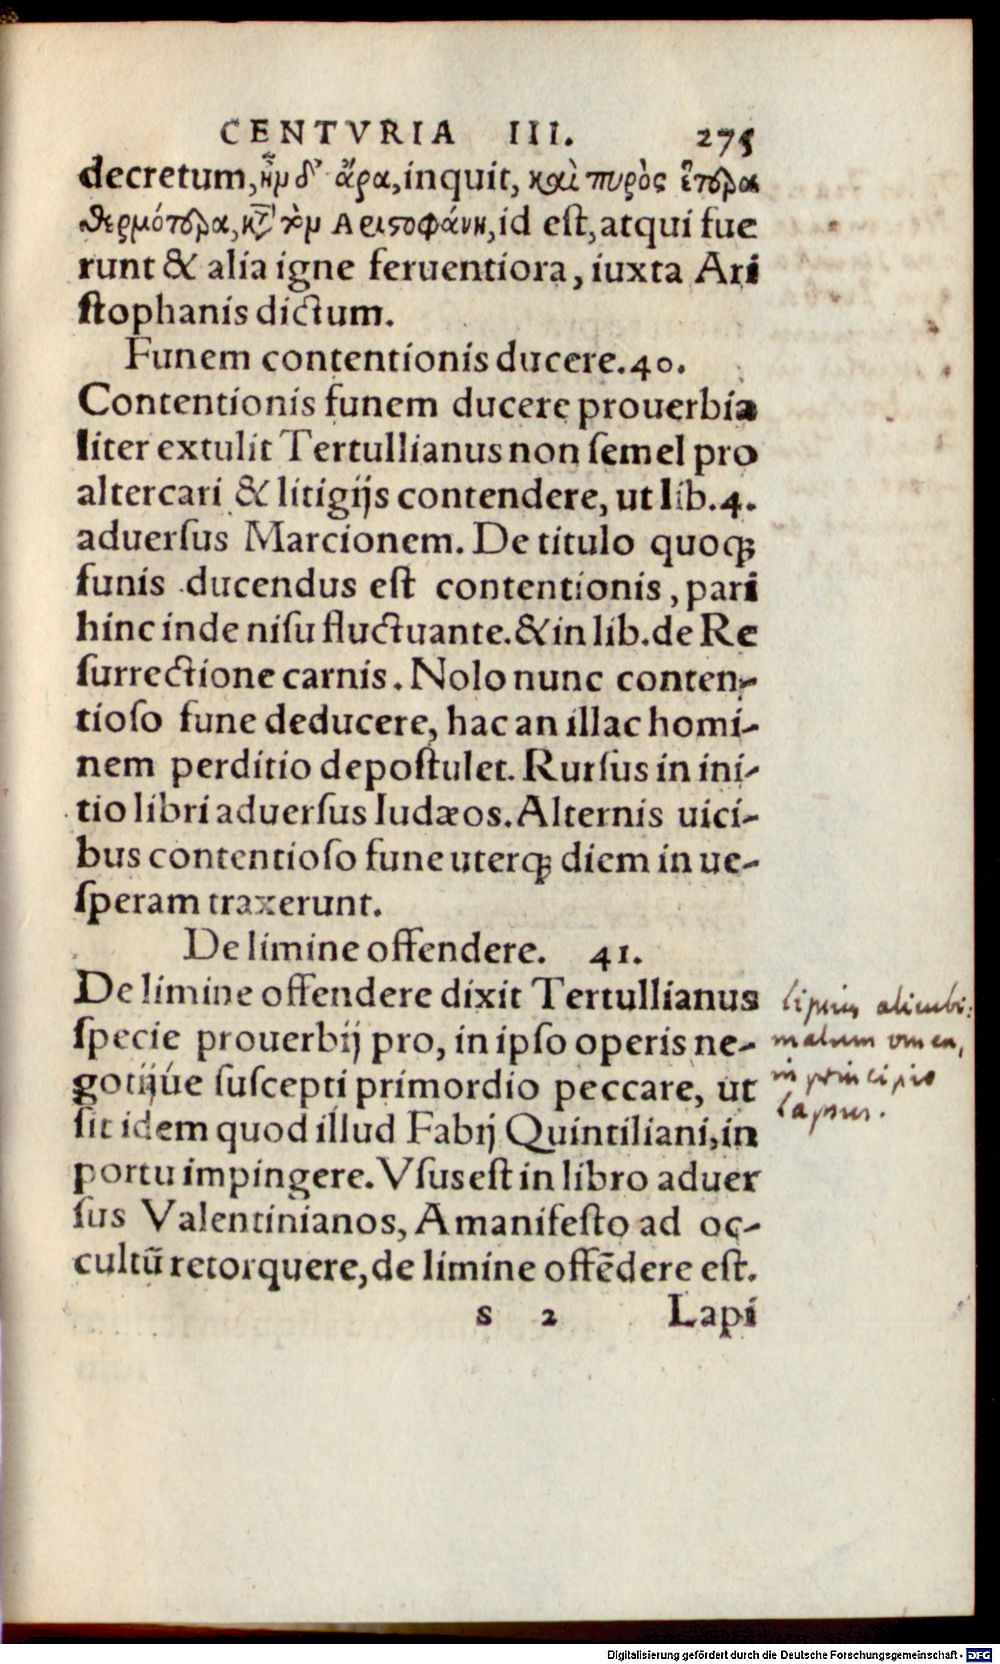 CENTVRIA III. 275
decretum, ἦν δ' ἄρα, inquit, καὶ πυρὸς ἕτερα
θερμότερα, κατ' τὸν Αριστοφάνη, id est, atqui fue
runt & alia igne feruentiora, iuxta Ari
stophanis dictum.
Funem contentionis ducere. 40.
Contentionis funem ducere prouerbia
liter extulit Tertullianus non semel pro
altercari & litigijs contendere, ut lib. 4.
aduersus Marcionem. De titulo quoq;
funis ducendus est contentionis, pari
hinc inde nisu fluctuante. & in lib. de Re
surrectione carnis. Nolo nunc conten-
tioso fune deducere, hac an illac homi-
nem perditio depostulet. Rursus in ini-
tio libri aduersus Iudæos. Alternis uici-
bus contentioso fune uterq; diem in ue-
speram traxerunt.
De limine offendere. 41.
De limine offendere dixit Tertullianus
specie prouerbij pro, in ipso operis ne-
gotijúe suscepti primordio peccare, ut
sit idem quod illud Fabij Quintiliani, in
portu impingere. Vsus est in libro aduer
sus Valentinianos, A manifesto ad oc-
cultū retorquere, de limine offēdere est.
s 2 Lapi
alicubi:
malum omen,
in principio
lapsus.
Digitalisierung gefördert durch die Deutsche Forschungsgemeinschaft - DFG